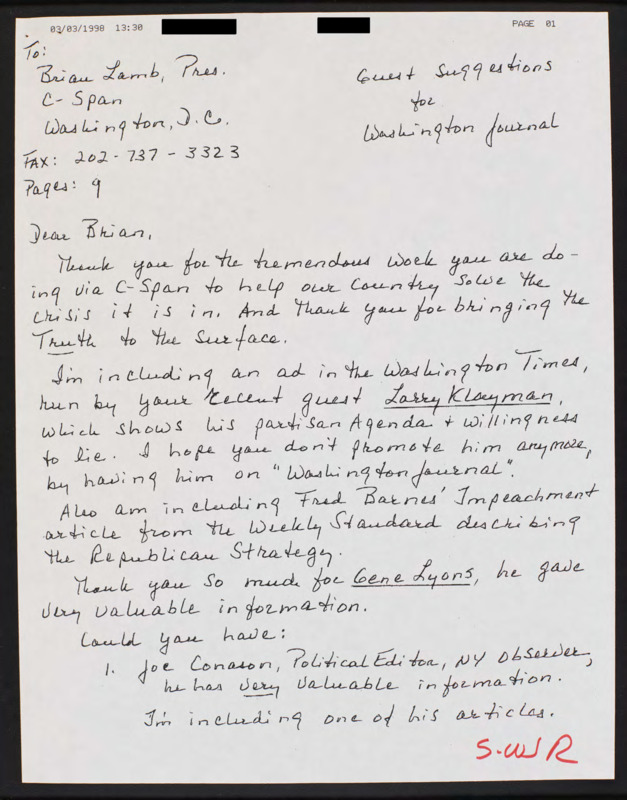 03/03/1998 13:30 PAGE 01
To:
Brian Lamb, Pres.
C-Span
Washington, D.C.
FAX: 202-737-3323
Pages: 9
Guest Suggestions
for
Washington Journal
Dear Brian,
Thank you for the tremendous work you are do-
ing via C-Span to help our country solve the
crisis it is in. And thank you for bringing the
Truth to the surface.
I'm including an ad in the Washington Times,
run by your recent guest Larry Klayman,
which shows his partisan Agenda + willingness
to lie. I hope you don't promote him anymore,
by having him on "Washington Journal".
Also am including Fred Barnes' Impeachment
article from the Weekly Standard describing
the Republican Strategy.
Thank you so much for Gene Lyons, he gave
very valuable information.
Could you have:
1. Joe Conason, Political Editor, NY Observer,
he has very valuable information.
I'm including one of his articles.
S-WJR